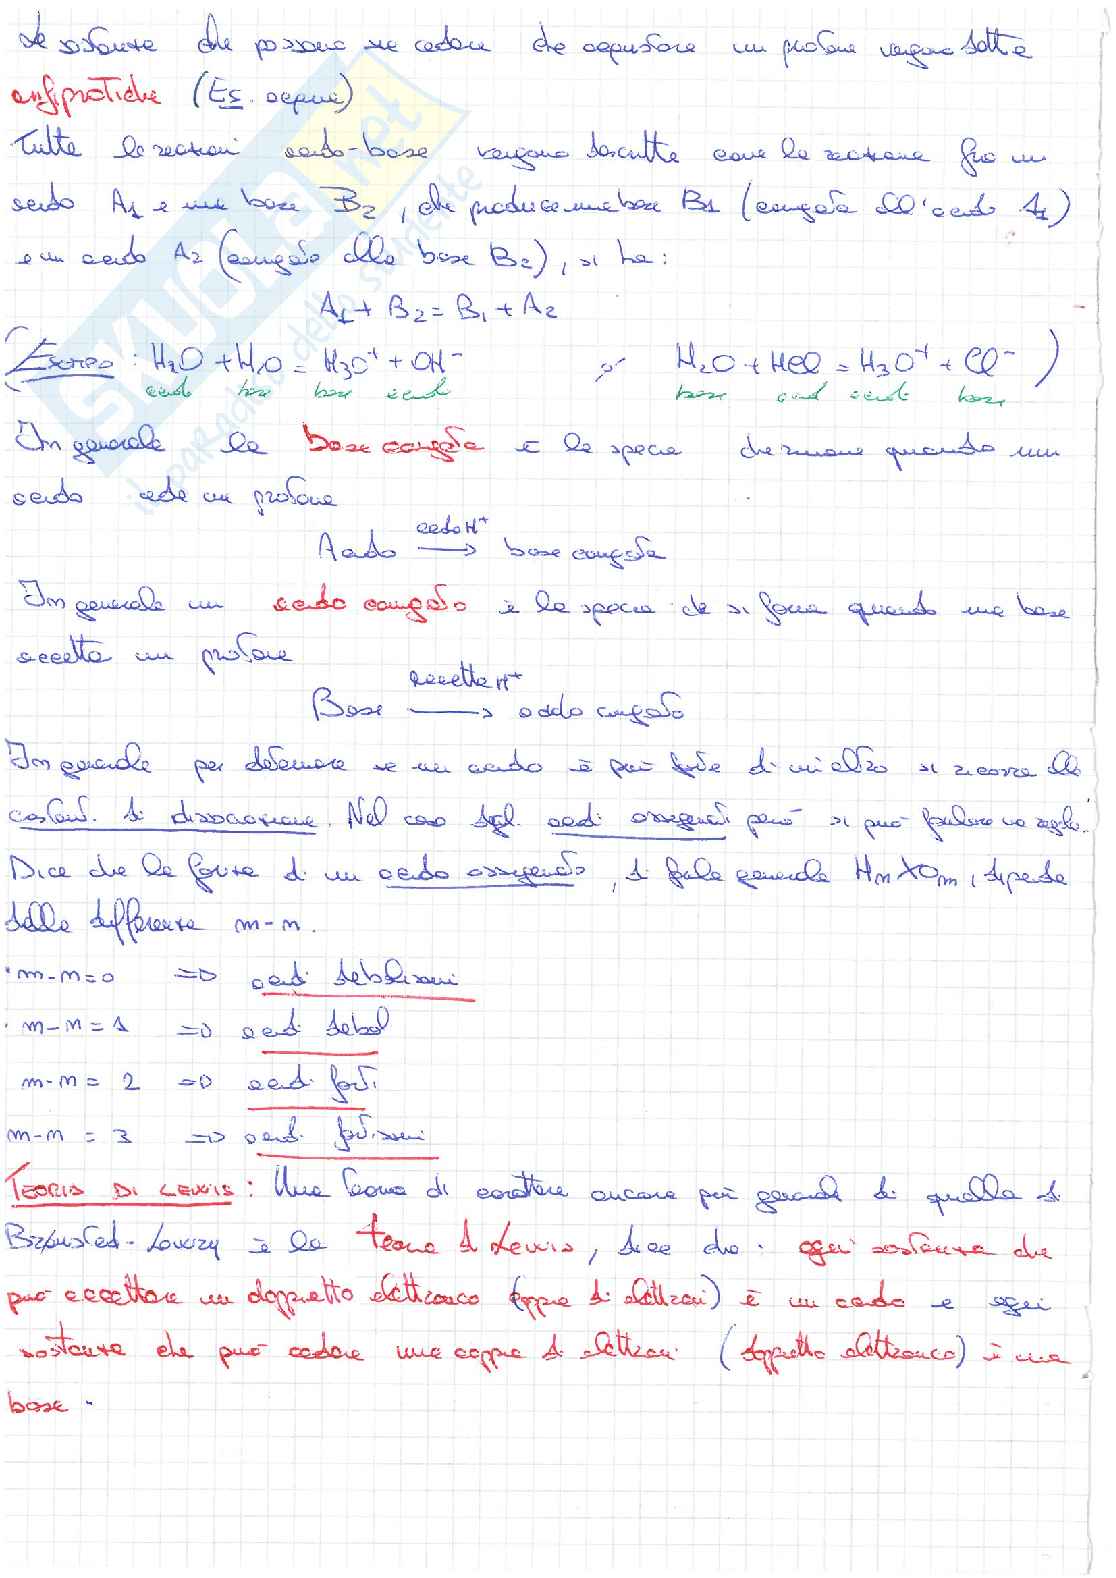 Le sostanze che possono sia cedere che acquistare un protone vengono dette
anfiprotiche (Es. acqua)
Tutte le reazioni acido-base vengono descritte come la reazione fra un
acido A1 e una base B2, che produce una base B1 (coniugata all'acido A1)
e un acido A2 (coniugato alla base B2), si ha:
A1 + B2 = B1 + A2
(Esempio: H2O + H2O = H3O+ + OH- H2O + HCl = H3O+ + Cl-)
acido base base acido base acido acido base
In generale la base coniugata è la specie che rimane quando un
acido cede un protone
Acido cede H+ → base coniugata
In generale un acido coniugato è la specie che si forma quando una base
accetta un protone
Base accetta H+ → acido coniugato
In generale per determinare se un acido è più forte di un altro si ricorre alle
costanti di dissociazione. Nel caso degli acidi ossigenati però si può formulare una regola.
Dice che la forza di un acido ossigenato, di formula generale HnXOm, dipende
dalla differenza m-n.
m-n=0 => acidi debolissimi
m-n=1 => acidi deboli
m-n=2 => acidi forti
m-n=3 => acidi fortissimi
TEORIA DI LEWIS: Una teoria di carattere ancora più generale di quella di
Brönsted-Lowry è la teoria di Lewis, dice che: ogni sostanza che
può accettare un doppietto elettronico (coppia di elettroni) è un acido e ogni
sostanza che può cedere una coppia di elettroni (doppietto elettronico) è una
base.
SKUOLA.net
il paradiso dello studente